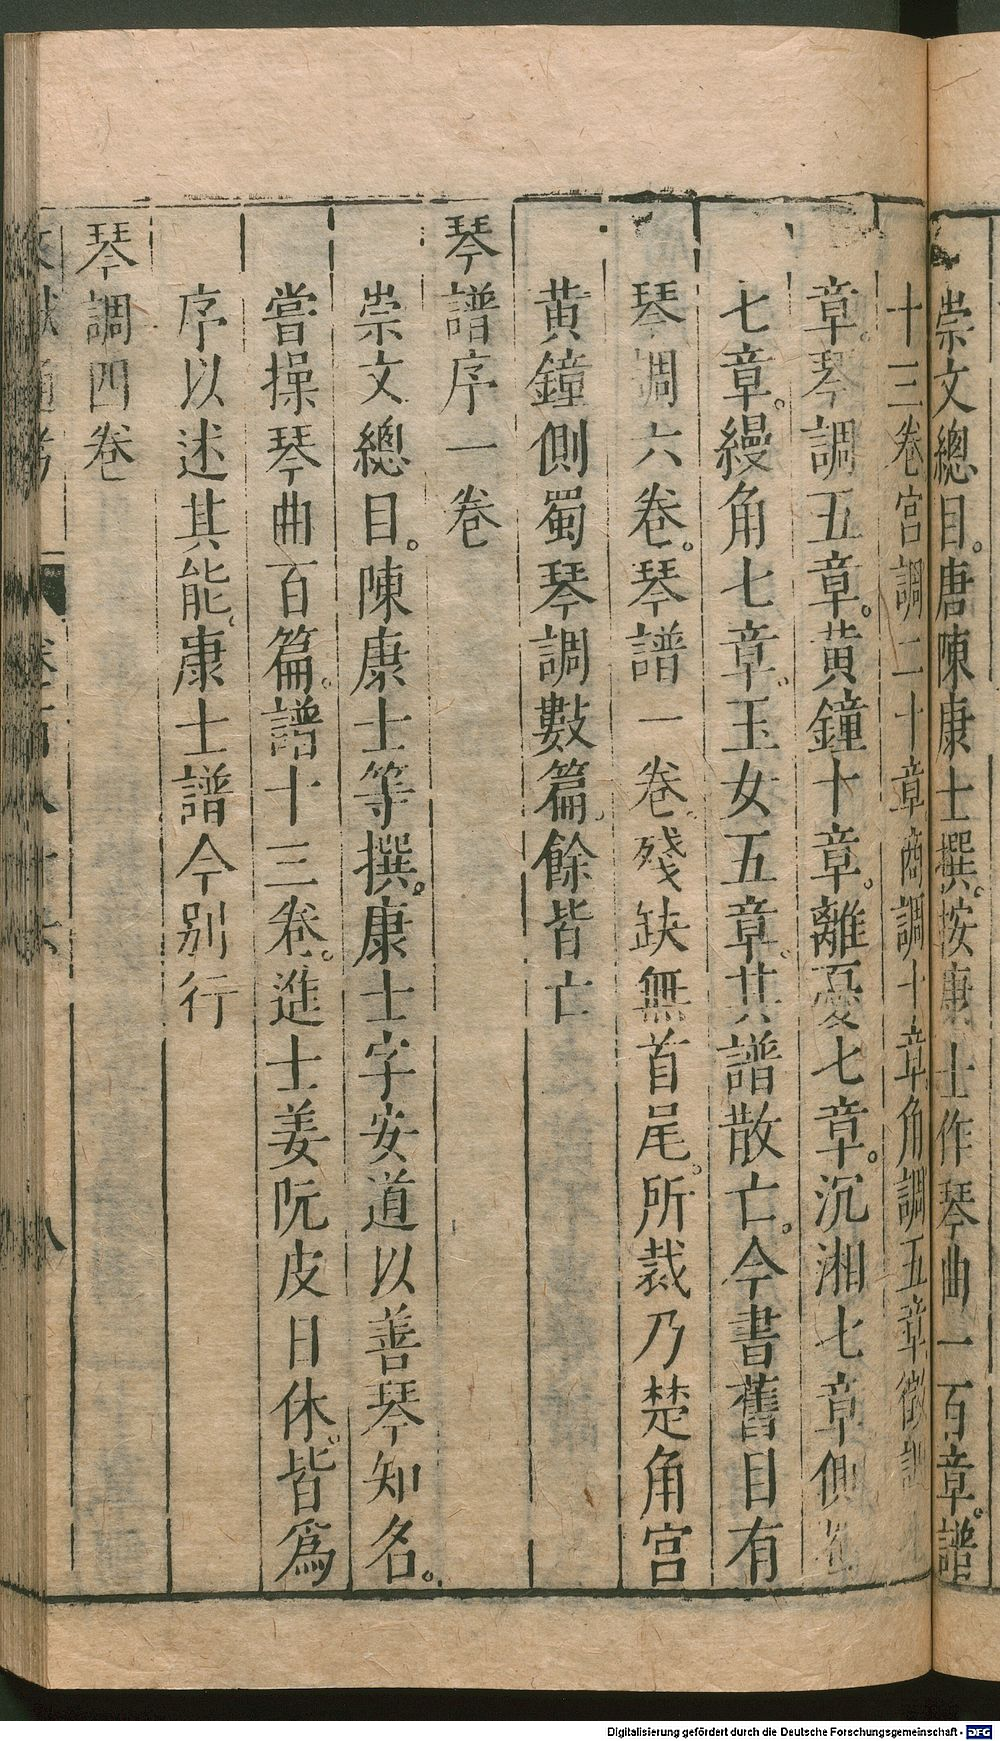 崇文總目。唐陳康士撰。按康士作琴曲一百章。譜
十三卷宮調二十章商調十章角調五章徵調
章。琴調五章。黃鐘十章。離憂七章。沉湘七章側
七章。縵角七章。玉女五章。其譜散亡。今書舊目有
琴調六卷。琴譜一卷。殘缺無首尾。所裁乃楚角宮
黃鐘側蜀琴調數篇。餘皆亡
琴譜序一卷
崇文總目。陳康士等撰。康士字安道以善琴知名。
嘗操琴曲百篇。譜十三卷。進士姜阮皮日休。皆爲
序以述其能。康士譜今別行
琴調四卷
八
Digitalisierung gefördert durch die Deutsche Forschungsgemeinschaft - DFG